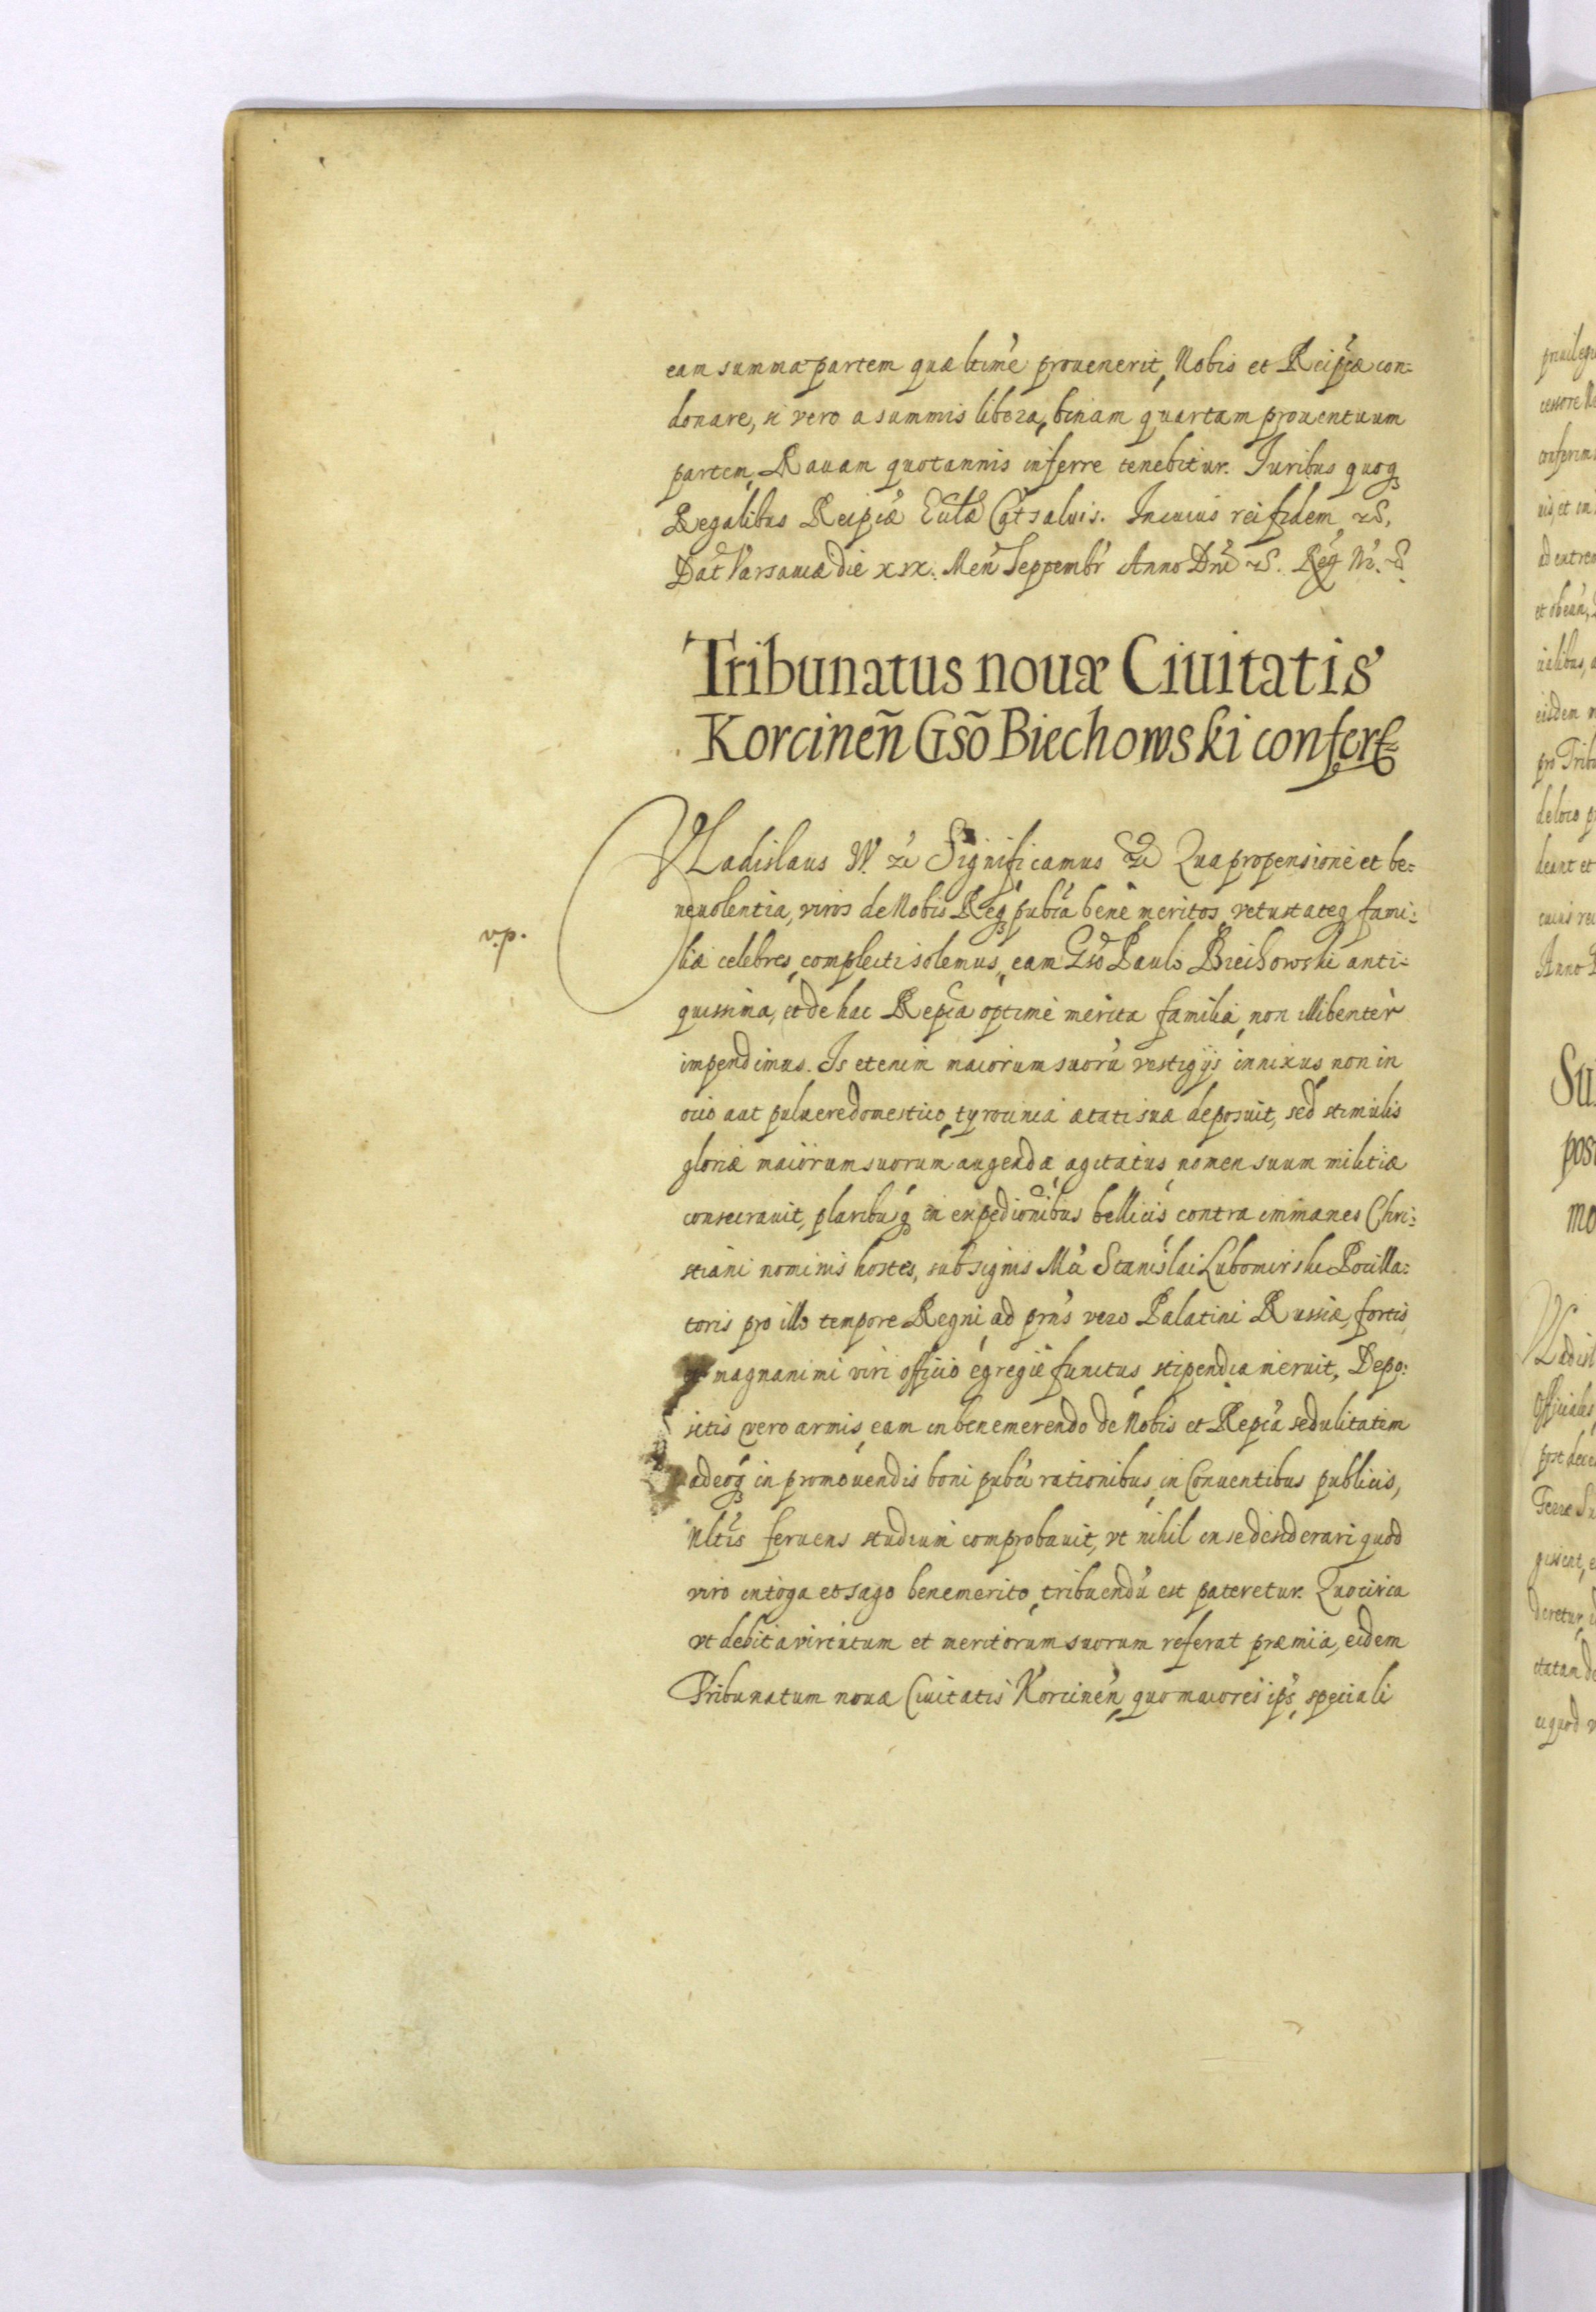 eam summa partem quæ ltimè prouenerit, Nobis et Reipcæ con-
donare, si vero a summis libera, binam quartam prouentuum
partem, Rauam quotannis inferre tenebitur. Iuribus quoq
Regalibus Reipcæ Ecclæ Cat salvis. In cuius rei fidem
Dat Varsauiæ die XIX. Men Septembr Anno Dni Reg Nr.
Tribunatus nouæ Ciuitatis
Korcineñ Gsõ Biechowski confert
VLadislaus IV. Significamus Qua propensione et be-
neuolentia, viros de Nobis Req publca bene meritos, vetustateq fami-
v.p.
liæ celebres, complecti solemus, eam Gso Paulo Biechowski anti-
quissima, et de hac Repca optime merita familia, non illibenter
impendimus. Is etenim maiorum suorũ vestigijs innixus non in
ocio aut puluere domestico, tyrocinia ætati suæ deposuit, sed stimulis
gloriæ maiorum suorum augendæ, agitatus, nomen suum militiæ
consecrauit, pluribusq in expedionibus bellicis contra immanes Chri-
stiani nominis hostes, sub signis Mci Stanislai Lubomirski Pocilla-
toris pro illo tempore Regni, ad prns vero Palatini Russiæ, fortis
et magnanimi viri officio egregiè functus, stipendia meruit, Depo-
sitis vero armis, eam in benemerendo de Nobis et Repca sedulitatem
adeoq in promouendis boni publci rationibus, in Conuentibus publicis,
feruens studium comprobauit, vt nihil in se desiderari quod
viro in toga et sago benemerito, tribuendũ est pateretur. Quocirca
vt debita virtutum et meritorum suorum referat præmia, eidem
Tribunatum nouæ Ciuitatis Korcineñ, quo maiores ips, speciali